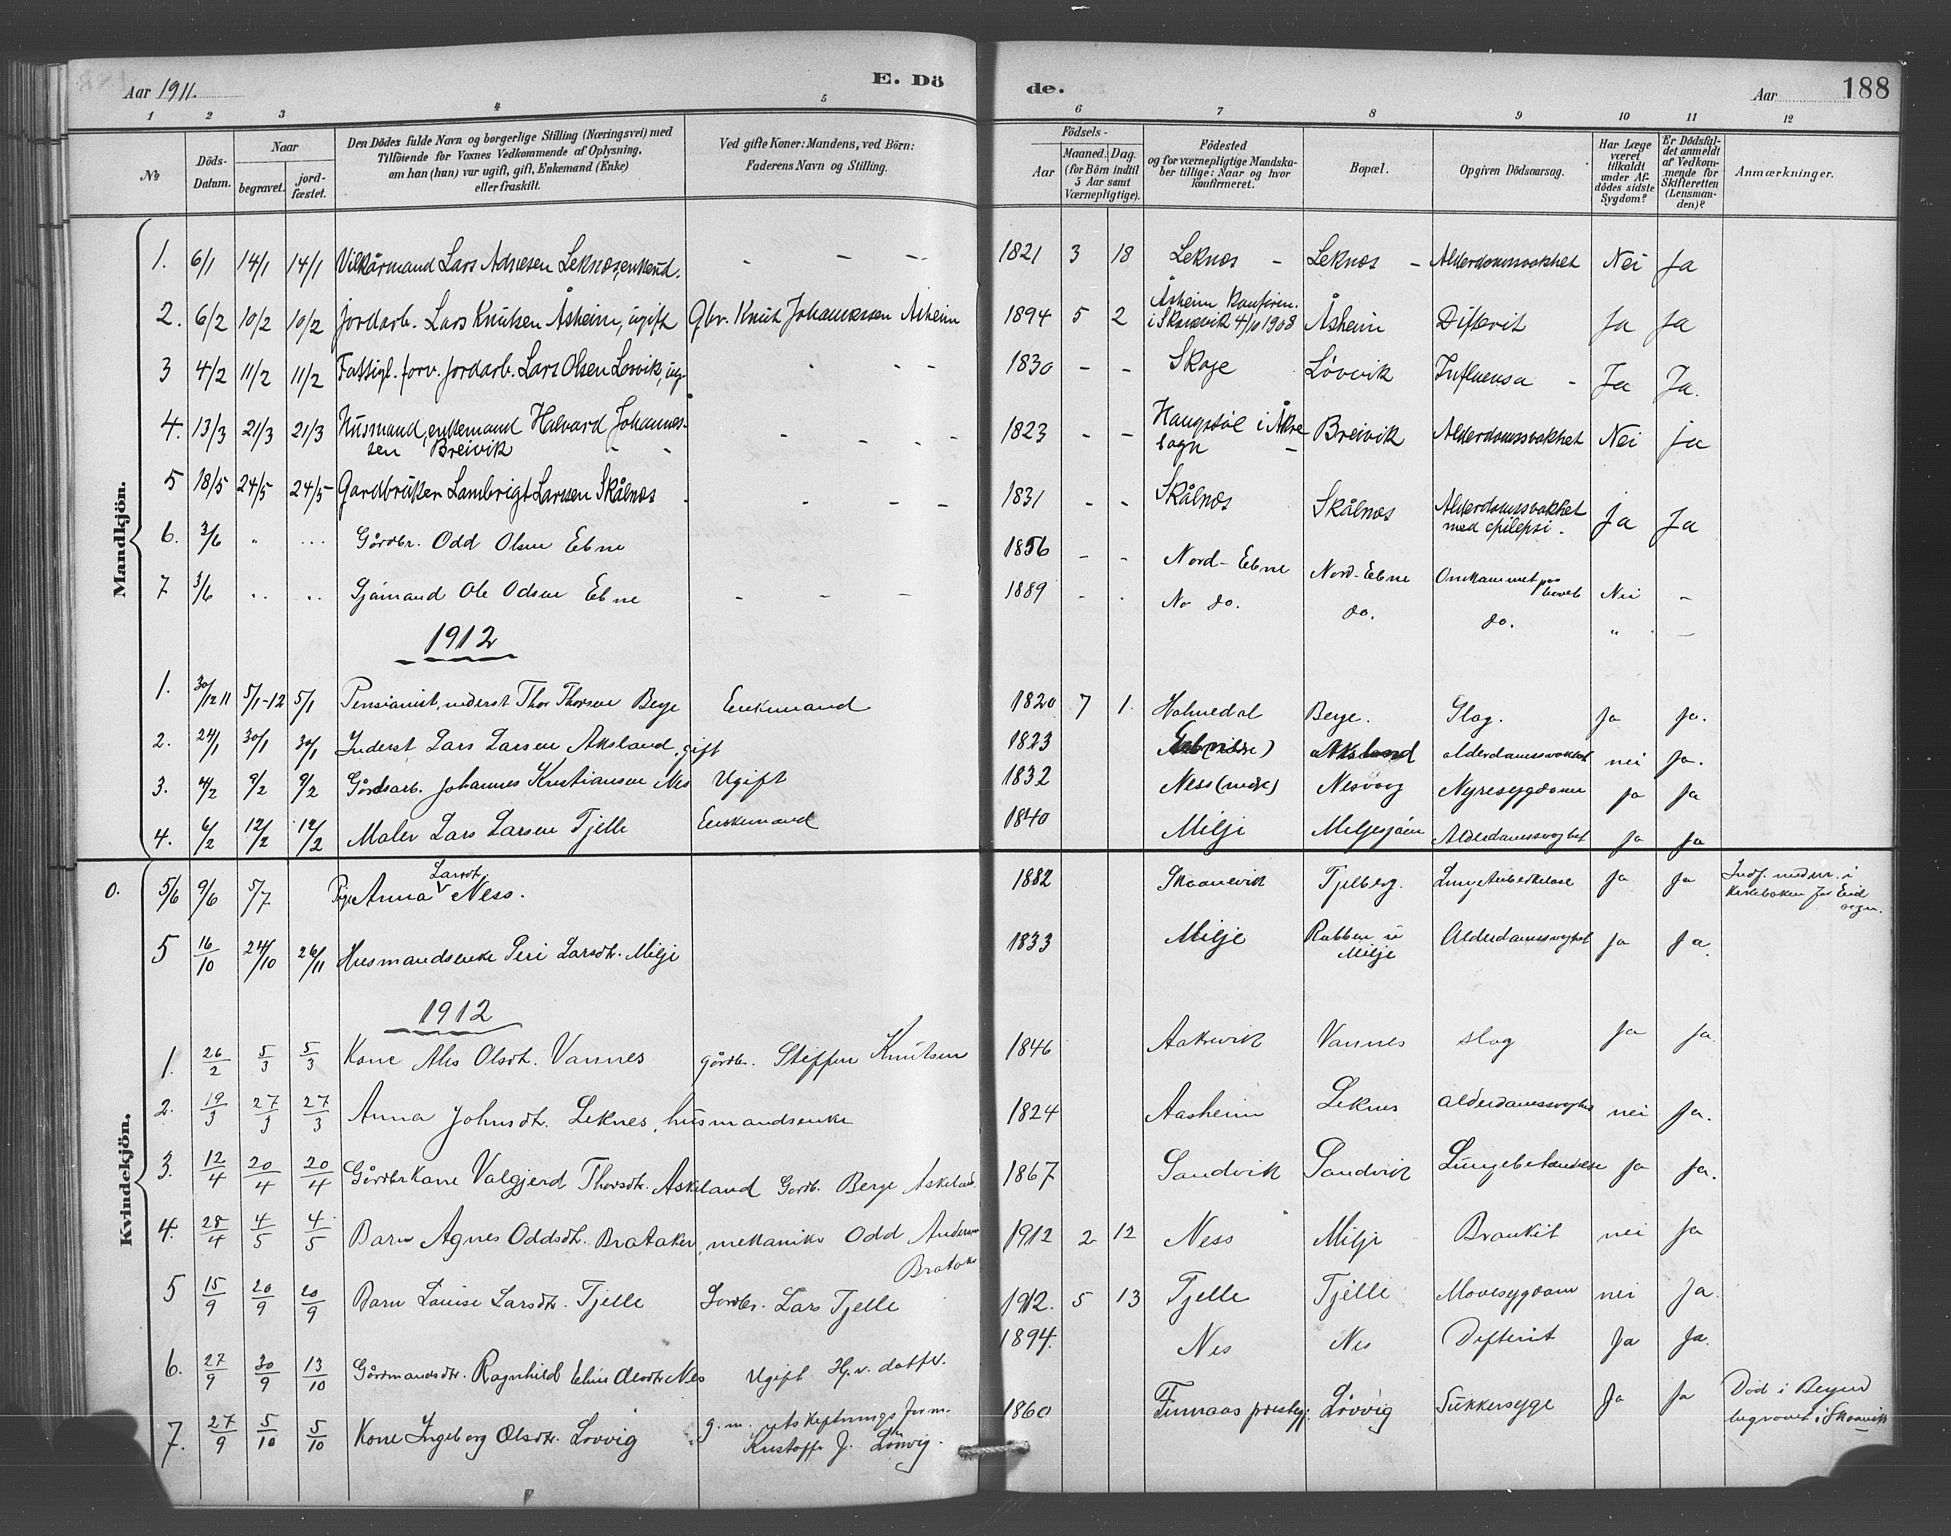 Aar 1911.
E. Dö
de.
Aar
188
1 2 3 4 5 6 7 8 9 10 11 12
No
Döds-Datum.
Naar
begravet.
jord-fæstet.
Den Dödes fulde Navn og borgerlige Stilling (Næringsvei) med
Tilföiende for Voxnes Vedkommende af Oplysning,
om han (hun) var ugift, gift, Enkemand (Enke)
eller fraskilt.
Ved gifte Koner: Mandens, ved Börn:
Faderens Navn og Stilling.
Födsels-
Aar
Maaned. Dag.
(for Börn indtil
5 Aar samt
Værnepligtige).
Födested
og for værnepligtige Mandska-
ber tillige: Naar og hvor
konfirmeret.
Bopæl.
Opgiven Dödsaarsag.
Har Læge
været
tilkaldt
under Af-
dödes sidste
Sygdom?
Er Dödsfal-
det anmeldt
af Vedkom-
mende for
Skifteretten
(Lensman-
den)?
Anmærkninger.
Mandkjön.
1. 6/1 14/1 14/1 Vilkårmand Lars Leknes, enkemd. - - - 1821 3 18 Leknæs - Leknæs - Alderdomssvakhet Nei Ja
2. 6/2 10/2 10/2 Jordarb. Lars Knutsen Åsheim, ugift Gbr. Knut Johannessen Åsheim 1894 5 2 Åsheim Konfirm. i Skånevik 4/10 1908 Åsheim Difterit Ja Ja
3 4/2 11/2 11/2 Fattigl. forv. Jordarb. Lars Olsen Løvvik, ug. - - - 1830 - - Løvvik Influensa - Ja Ja.
4. 13/3 21/3 21/3 Husmand, enkemand Halvard Johannes-
sen Breivik - - - 1823 - - i Åkre sogn - Breivik Alderdomssvakhet Nei Ja
5 18/5 24/5 24/5 - Gardbruker Lambrigt Larssen Skålnes - - - 1831 - - Skålnæs Skålnæs Alderdomssvakhet
med epilepsi. Ja Ja
6. 3/6 " ... Gårdbr. Odd Olsen Ebne 1856 - - Nord-Ebne Nord-Ebne Omkommet paa havet Nei -
7 3/6 .. .. Ole Odsen Ebne - - - 1889 - . do. do. do. " -
1912
1. 30/12 11 5/1-12 5/1 Pensionist, inderst Thor Thorsen Berge Enkemand 1820 7 1. Holmedal Berge. Slag. Ja Ja.
2. 24/1 30/1 30/1 Inderst Lars Larsen Aksland, gift 1823 Aksland alderdomssvakhet nei Ja.
3. 4/2 9/2 9/2 Gårdsarb. Johannes Kristiansen Nes Ugift 1832 Ness (nedre) Nesvaag Nyresygdom Ja Ja
4. 6/2 12/2 12/2 Maler Lars Larsen Tjelle Enkemand 1840 Milje Miljesjøen Alderdomssvaghet Ja Ja
Kvindekjön.
0. 5/6 9/6 5/7 Pige Anna Larsdt. Ness. 1882 Skaanevik Tjelberg. Lungetuberkelose Ja Ja Indf. under. i
kirkeboken for Eid
sogn.
5 16/10 24/10 26/11 Husmandsenke Siri Larsdt. Milje 1833 Milje Rabben u
Milje Alderdomssvaghet Ja Ja.
1912
1. 26/2 5/3 5/3 Kone Olsdt. Vannes gårdbr. Steffen Knutsen 1846 Aakrevik Vannes slag Ja Ja.
2. 19/3 27/3 27/3 Anna Johnsdt. Leknes, husmandsenke 1824 Aasheim Leknes alderdomssvaghet nei Ja.
3. 12/4 20/4 20/4 Gårdbrkone Valgjerd Thorsdt. Askeland Gardb. Berge Askeland. 1867 Sandvik Sandvik Lungebetændelse Ja Ja.
4. 28/4 4/5 4/5 Barn Agnes Oddsdt. Brataker, mekaniker Odd Andersen
Brataker 1912 2 12 Ness Milje Bronkit nei Ja
5 15/9 20/9 20/9 Barn Louise Larsdt. Tjelle Gardbr. Lars Tjelle 1912. 5 13 Tjelle Tjelle Mavesygdom nei Ja.
6. 27/9 30/9 13/10 Gårdmandsdtr. Ragnhild Olsdtr Nes Ugift 1894. Nes Nes Difterit Ja Ja.
7. 27/9 5/10 5/10 Kone Ingeborg Olsdtr. Lovvig g. m. utskiftnings form.
Kristoffer J. Lovvig. 1860 Finnaas prestegj. Løvvig Sukkersyge Ja Ja Død i Bergen
begravet i Skånevik